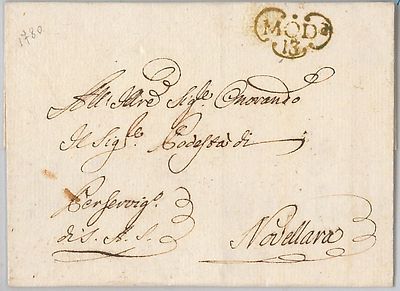 1780
MODa
13
All' Illre Sigr. Onorando
Il Sigr. Podestà di
Per servigo.
di S. A. S.
Novellara